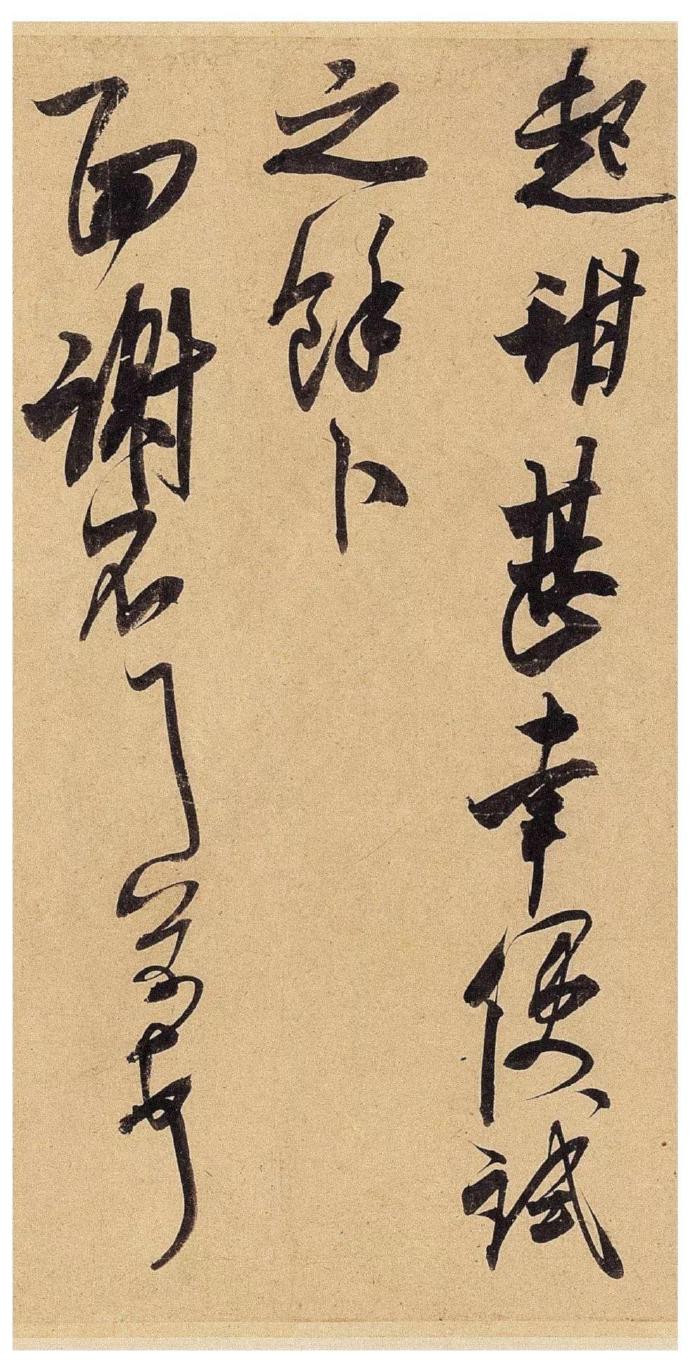 起甜甚幸便試
之餘卜
面謝不